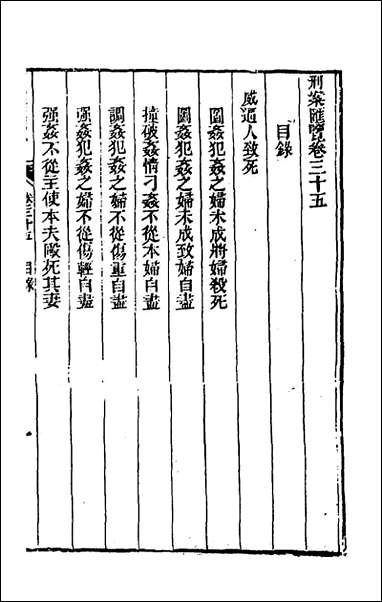 刑案匯覽卷三十五
目錄
威逼人致死
圖姦犯姦之婦未成將婦殺死
圖姦犯姦之婦未成致婦自盡
撞破姦情刁姦不從本婦自盡
調姦犯姦之婦不從傷重自盡
強姦犯姦之婦不從傷輕自盡
強姦不從主使本夫毆死其妻
卷三十五 目錄